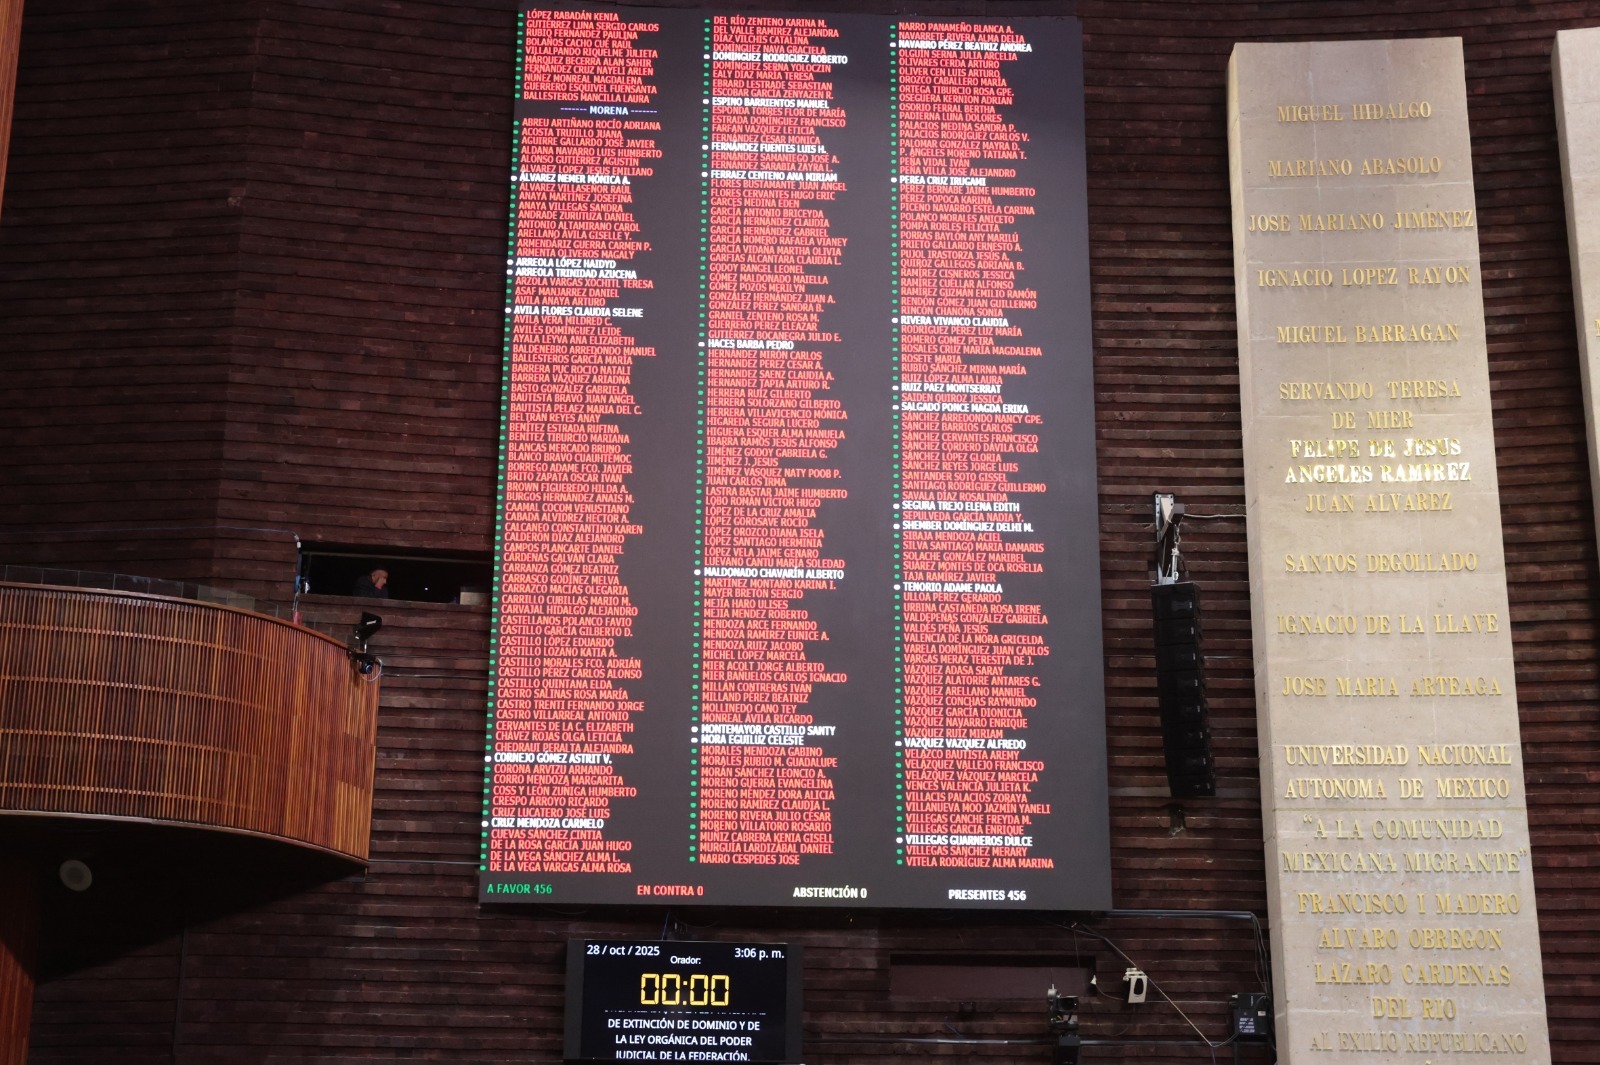 LÓPEZ RABADÁN KENIA
GUTIÉRREZ LUNA SERGIO CARLOS
RUBIO FERNÁNDEZ PAULINA
BOLAÑOS CACHO CUÉ RAÚL
VILLALPANDO RIQUELME JULIETA
MÁRQUEZ BECERRA ALAN SAHIR
FERNÁNDEZ CRUZ NAYELI ARLEN
NUÑEZ MONREAL MAGDALENA
GUERRERO ESQUIVEL FUENSANTA
BALLESTEROS MANCILLA LAURA
------- MORENA -------
ABREU ARTIÑANO ROCÍO ADRIANA
ACOSTA TRUJILLO JUANA
AGUIRRE GALLARDO JOSÉ JAVIER
ALDANA NAVARRO LUIS HUMBERTO
ALONSO GUTIÉRREZ AGUSTÍN
ÁLVAREZ LÓPEZ JESÚS EMILIANO
ÁLVAREZ NEMER MÓNICA A.
ÁLVAREZ VILLASEÑOR RAÚL
ANAYA MARTÍNEZ JOSEFINA
ANAYA VILLEGAS SANDRA
ANDRADE ZURUTUZA DANIEL
ANTONIO ALTAMIRANO CAROL
ARELLANO ÁVILA GISELLE Y.
ARMENDÁRIZ GUERRA CARMEN P.
ARMENTÍA OLIVEROS MAGALY
ARREOLA LÓPEZ HAIDYD
ARREOLA TRINIDAD AZUCENA
ARZOLA VARGAS XÓCHITL TERESA
ASAF MANJARREZ DANIEL
ÁVILA ANAYA ARTURO
ÁVILA FLORES CLAUDIA SELENE
ÁVILA VERA MILDRED C.
AVILÉS DOMÍNGUEZ LEIDE
AYALA LEYVA ANA ELIZABETH
BALDENEBRO ARREDONDO MANUEL
BALLESTEROS GARCÍA MARÍA
BARRERA PUC ROCÍO NATALI
BARRERA VÁZQUEZ ARIADNA
BASTO GONZÁLEZ GABRIELA
BAUTISTA BRAVO JUAN ÁNGEL
BAUTISTA PELÁEZ MARÍA DEL C.
BELTRÁN REYES ANAY
BENÍTEZ ESTRADA RUFINA
BENÍTEZ TIBURCIO MARIANA
BLANCAS MERCADO BRUNO
BLANCO BRAVO CUAUHTÉMOC
BORREGO ADAME FCO. JAVIER
BRITO ZAPATA ÓSCAR IVÁN
BROWN FIGUEREDO HILDA A.
BURGOS HERNÁNDEZ ANAIS M.
CAAMAL COCOM VENUSTIANO
CABADA ALVÍDREZ HÉCTOR A.
CALCÁNEO CONSTANTINO KAREN
CALDERÓN DÍAZ ALEJANDRO
CAMPOS PLANCARTE DANIEL
CÁRDENAS GALVÁN CLARA
CARRANZA GÓMEZ BEATRIZ
CARRASCO GODÍNEZ MELVA
CARRAZCO MACÍAS OLEGARIA
CARRILLO CUBILLAS MARIO M.
CARVAJAL HIDALGO ALEJANDRO
CASTELLANOS POLANCO FAVIO
CASTILLO GARCÍA GILBERTO D.
CASTILLO LÓPEZ EDUARDO
CASTILLO LOZANO KATIA A.
CASTILLO MORALES FCO. ADRIÁN
CASTILLO PÉREZ CARLOS ALONSO
CASTILLO QUINTANA ELDA
CASTRO SALINAS ROSA MARÍA
CASTRO TRENTI FERNANDO JORGE
CASTRO VILLARREAL ANTONIO
CERVANTES DE LA C. ELIZABETH
CHÁVEZ ROJAS OLGA LETICIA
CHEDRAUI PERALTA ALEJANDRA
CORNEJO GÓMEZ ASTRIT V.
CORONA ARVIZU ARMANDO
CORRO MENDOZA MARGARITA
COSS Y LEÓN ZÚÑIGA HUMBERTO
CRESPO ARROYO RICARDO
CRUZ LUCATERO JOSÉ LUIS
CRUZ MENDOZA CARMELO
CUEVAS SÁNCHEZ CINTIA
DE LA ROSA GARCÍA JUAN HUGO
DE LA VEGA SÁNCHEZ ALMA L.
DE LA VEGA VARGAS ALMA ROSA
DEL RÍO ZENTENO KARINA M.
DEL VALLE RAMÍREZ ALEJANDRA
DÍAZ VILCHIS CATALINA
DOMÍNGUEZ NAVA GRACIELA
DOMÍNGUEZ RODRÍGUEZ ROBERTO
DOMÍNGUEZ SERNA YOLOCZIN
EALY DÍAZ MARÍA TERESA
EBRARD LESTRADE SEBASTIAN
ESCOBAR GARCÍA ZENYAZEN R.
ESPINO BARRIENTOS MANUEL
ESPONDA TORRES FLOR DE MARÍA
ESTRADA DOMÍNGUEZ FRANCISCO
FARFÁN VÁZQUEZ LETICIA
FERNÁNDEZ CÉSAR MÓNICA
FERNÁNDEZ FUENTES LUIS H.
FERNÁNDEZ SAMANIEGO JOSÉ A.
FERNÁNDEZ SARABIA ZAYRA L.
FERRÁEZ CENTENO ANA MIRIAM
FLORES BUSTAMANTE JUAN ÁNGEL
FLORES CERVANTES HUGO ERIC
GARCÉS MEDINA EDÉN
GARCÍA ANTONIO BRICEYDA
GARCÍA HERNÁNDEZ CLAUDIA
GARCÍA HERNÁNDEZ GABRIEL
GARCÍA ROMERO RAFAELA VIANEY
GARCÍA VIDAÑA MARTHA OLIVIA
GARFIAS ALCÁNTARA CLAUDIA L.
GODOY RANGEL LEONEL
GÓMEZ MALDONADO MAIELLA
GÓMEZ POZOS MERILYN
GONZÁLEZ HERNÁNDEZ JUAN A.
GONZÁLEZ PÉREZ SANDRA B.
GRANIEL ZENTENO ROSA M.
GUERRERO PÉREZ ELEAZAR
GUTIÉRREZ BOCANEGRA JULIO E.
HACES BARBA PEDRO
HERNÁNDEZ MIRÓN CARLOS
HERNÁNDEZ PÉREZ CÉSAR A.
HERNÁNDEZ SÁENZ CLAUDIA A.
HERNÁNDEZ TAPIA ARTURO R.
HERRERA RUIZ GILBERTO
HERRERA SOLORZANO GILBERTO
HERRERA VILLAVICENCIO MÓNICA
HIGAREDA SEGURA LUCERO
HIGUERA ESQUER ALMA MANUELA
IBARRA RAMOS JESÚS ALFONSO
JIMÉNEZ GODOY GABRIELA G.
JIMÉNEZ J. JESÚS
JIMÉNEZ VÁSQUEZ NATY POOB P.
JUAN CARLOS IRMA
LASTRA BASTAR JAIME HUMBERTO
LOBO ROMÁN VÍCTOR HUGO
LÓPEZ DE LA CRUZ AMALIA
LÓPEZ GOROSAVE ROCÍO
LÓPEZ OROZCO DIANA ISELA
LÓPEZ SANTIAGO HERMINIA
LÓPEZ VELA JAIME GENARO
LUÉVANO CANTÚ MARÍA SOLEDAD
MALDONADO CHAVARÍN ALBERTO
MARTÍNEZ MONTAÑO KARINA I.
MAYER BRETÓN SERGIO
MEJÍA HARO ULISES
MEJÍA MÉNDEZ ROBERTO
MENDOZA ARCE FERNANDO
MENDOZA RAMÍREZ EUNICE A.
MENDOZA RUIZ JACOBO
MICHEL LÓPEZ MARCELA
MIER ACOLT JORGE ALBERTO
MIER BAÑUELOS CARLOS IGNACIO
MILLÁN CONTRERAS IVÁN
MILLAND PÉREZ BEATRIZ
MOLLINEDO CANO TEY
MONREAL ÁVILA RICARDO
MONTEMAYOR CASTILLO SANTY
MORA EGUILUZ CELESTE
MORALES MENDOZA GABINO
MORALES RUBIO M. GUADALUPE
MORÁN SÁNCHEZ LEONCIO A.
MORENO GUERRA EVANGELINA
MORENO MÉNDEZ DORA ALICIA
MORENO RAMÍREZ CLAUDIA L.
MORENO RIVERA JULIO CÉSAR
MORENO VILLATORO ROSARIO
MUÑIZ CABRERA KENIA GISELL
MURGUÍA LARDIZÁBAL DANIEL
NARRO CÉSPEDES JOSÉ
NARRO PANAMEÑO BLANCA A.
NAVARRETE RIVERA ALMA DELIA
NAVARRO PÉREZ BEATRIZ ANDREA
OLGUÍN SERNA JULIA ARCELIA
OLIVARES CERDA ARTURO
OLIVER CEN LUIS ARTURO
OROZCO CABALLERO MARÍA
ORTEGA TIBURCIO ROSA GPE.
OSEGUERA KERNION ADRIÁN
OSORIO FERRAL BERTHA
PADIERNA LUNA DOLORES
PALACIOS MEDINA SANDRA P.
PALACIOS RODRÍGUEZ CARLOS V.
PALOMAR GONZÁLEZ MAYRA D.
P. ÁNGELES MORENO TATIANA T.
PEÑA VIDAL IVÁN
PEÑA VILLA JOSÉ ALEJANDRO
PEREA CRUZ IRUGAMI
PÉREZ BERNABE JAIME HUMBERTO
PÉREZ POPOCA KARINA
PICENO NAVARRO ESTELA CARINA
POLANCO MORALES ANICETO
POMPA ROBLES FELICITA
PORRAS BAYLÓN ANY MARILÚ
PRIETO GALLARDO ERNESTO A.
PUJOL IRASTORZA JESÚS A.
QUIROZ GALLEGOS ADRIANA B.
RAMÍREZ CISNEROS JESSICA
RAMÍREZ CUÉLLAR ALFONSO
RAMÍREZ GUZMÁN EMILIO RAMÓN
RENDÓN GÓMEZ JUAN GUILLERMO
RINCÓN CHANONA SONIA
RIVERA VIVANCO CLAUDIA
RODRÍGUEZ PÉREZ LUZ MARÍA
ROMERO GÓMEZ PETRA
ROSALES CRUZ MARÍA MAGDALENA
ROSETE MARÍA
RUBIO SÁNCHEZ MIRNA MARÍA
RUIZ LÓPEZ ALMA LAURA
RUIZ PÁEZ MONTSERRAT
SAIDEN QUIROZ JESSICA
SALGADO PONCE MAGDA ERIKA
SÁNCHEZ ARREDONDO NANCY GPE.
SÁNCHEZ BARRIOS CARLOS
SÁNCHEZ CERVANTES FRANCISCO
SÁNCHEZ CORDERO DÁVILA OLGA
SÁNCHEZ LÓPEZ GLORIA
SÁNCHEZ REYES JORGE LUIS
SANTANDER SOTO GISSEL
SANTIAGO RODRÍGUEZ GUILLERMO
SAVALA DÍAZ ROSALINDA
SEGURA TREJO ELENA EDITH
SEPÚLVEDA GARCÍA NADIA Y.
SHEMBER DOMÍNGUEZ DELHI M.
SIBAJA MENDOZA ACIEL
SILVA SANTIAGO MARÍA DAMARIS
SOLACHE GONZÁLEZ MARIBEL
SUÁREZ MONTES DE OCA ROSELIA
TAJA RAMÍREZ JAVIER
TENORIO ADAME PAOLA
ULLOA PÉREZ GERARDO
URBINA CASTAÑEDA ROSA IRENE
VALDEPEÑAS GONZÁLEZ GABRIELA
VALDÉS PEÑA JESÚS
VALENCIA DE LA MORA GRICELDA
VARELA DOMÍNGUEZ JUAN CARLOS
VARGAS MERAZ TERESITA DE J.
VÁZQUEZ ADASA SARAY
VÁZQUEZ ALATORRE ANTARES G.
VÁZQUEZ ARELLANO MANUEL
VÁZQUEZ CONCHAS RAYMUNDO
VÁZQUEZ GARCÍA DIONICIA
VÁZQUEZ NAVARRO ENRIQUE
VÁZQUEZ RUIZ MIRIAM
VÁZQUEZ VÁZQUEZ ALFREDO
VELAZCO BAUTISTA AREMY
VELÁZQUEZ VALLEJO FRANCISCO
VELÁZQUEZ VÁZQUEZ MARCELA
VENCES VALENCIA JULIETA K.
VILLACIS PALACIOS ZORAYA
VILLANUEVA MOO JAZMÍN YANELI
VILLEGAS CANCHÉ FREYDA M.
VILLEGAS GARCÍA ENRIQUE
VILLEGAS GUARNEROS DULCE
VILLEGAS SÁNCHEZ MERARY
VITELA RODRÍGUEZ ALMA MARINA
A FAVOR 456
EN CONTRA 0
ABSTENCIÓN 0
PRESENTES 456
28 / oct / 2025
3:06 p. m.
Orador:
00:00
DE EXTINCIÓN DE DOMINIO Y DE
LA LEY ORGÁNICA DEL PODER
JUDICIAL DE LA FEDERACIÓN.
MIGUEL HIDALGO
MARIANO ABASOLO
JOSE MARIANO JIMENEZ
IGNACIO LOPEZ RAYON
MIGUEL BARRAGAN
SERVANDO TERESA
DE MIER
FELIPE DE JESUS
ANGELES RAMIREZ
JUAN ALVAREZ
SANTOS DEGOLLADO
IGNACIO DE LA LLAVE
JOSE MARIA ARTEAGA
UNIVERSIDAD NACIONAL
AUTONOMA DE MEXICO
"A LA COMUNIDAD
MEXICANA MIGRANTE"
FRANCISCO I MADERO
ALVARO OBREGON
LAZARO CARDENAS
DEL RIO
AL EXILIO REPUBLICANO